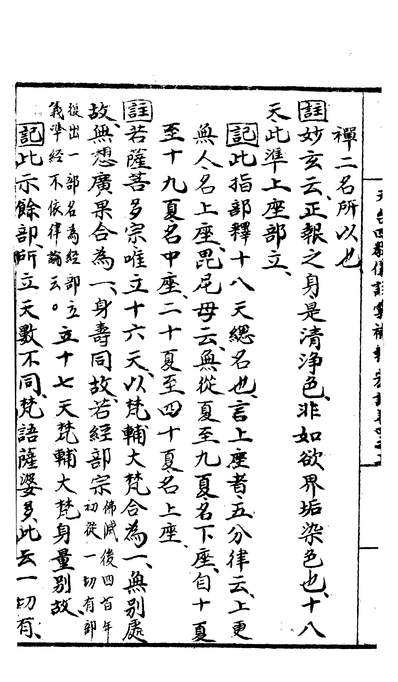 禪二名所以也
註妙玄云、正報之身是清淨色、非如欲界垢染色也、十八
天、此準上座部立、
記此指部釋十八天總名也、言上座者、五分律云、上更
無人名上座、毘尼母云、無從夏至九夏名下座、自十夏
至十九夏名中座、二十夏至四十夏名上座、
註若薩菩多宗唯立十六天、以梵輔大梵合為一、無別處
故、無想廣果合為一、身壽同故、若經部宗佛滅後四百年初從一切有部
從出一部名為經部立義準經不依律論云。立十七天梵輔大梵身量別故、
記此示餘部所立天數不同、梵語薩婆多、此云一切有、
天台四教儀註彙補輔宏記卷